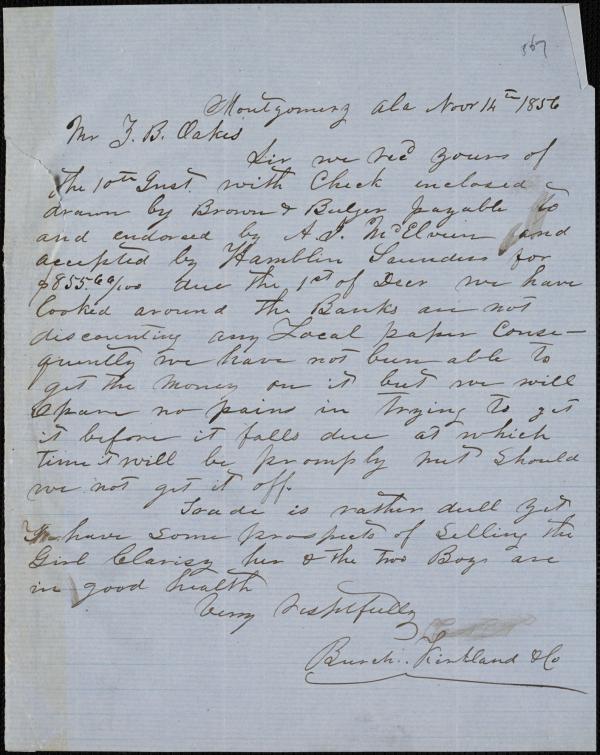 367
Montgomery Ala Novr 14th 1856
Mr Z. B. Oakes
Sir we recd yours of
the 10th Inst. with Check enclosed
drawn by Brown & Bulger payable to
and endorsed by A. J. McElveen and
accepted by Hamblin Saunders for
$855.60/100 due the 1st of Decr we have
looked around the Banks are not
discounting any Local paper Conse-
quently we have not been able to
get the money on it but we will
Spare no pains in trying to get
it before it falls due at which
time it will be promply met Should
we not get it off.
Trade is rather dull yet
We have Some prospects of Selling the
Girl Clarisy her & the two Boys are
in good health
Very Respetfully
Burch. Kirkland & Co